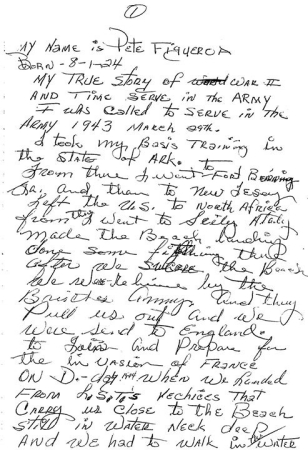 1
My Name is Pete Figueroa
Born - 8-1-24
My True Story of War II
And Time Serve in the Army
I was called to Serve in the
Army 1943 March 29th.
I took my Basis Training in
the State of Ark. to
From there I went Fort Benning
Ga, and than to New Jersey
left the U.S. to North Africa
from they I went to Sicily Italy
made the Beach landing
done some fighting there
after we the Beach
We were relieve by the
British Army and they
Pull us out and we
were send to England.
to Join and Prepare for
the invasion of France
ON D-day when we landed
From Vechices That
Carry us close to the Beach
Still in Water Neck deep
And we had to walk in Water